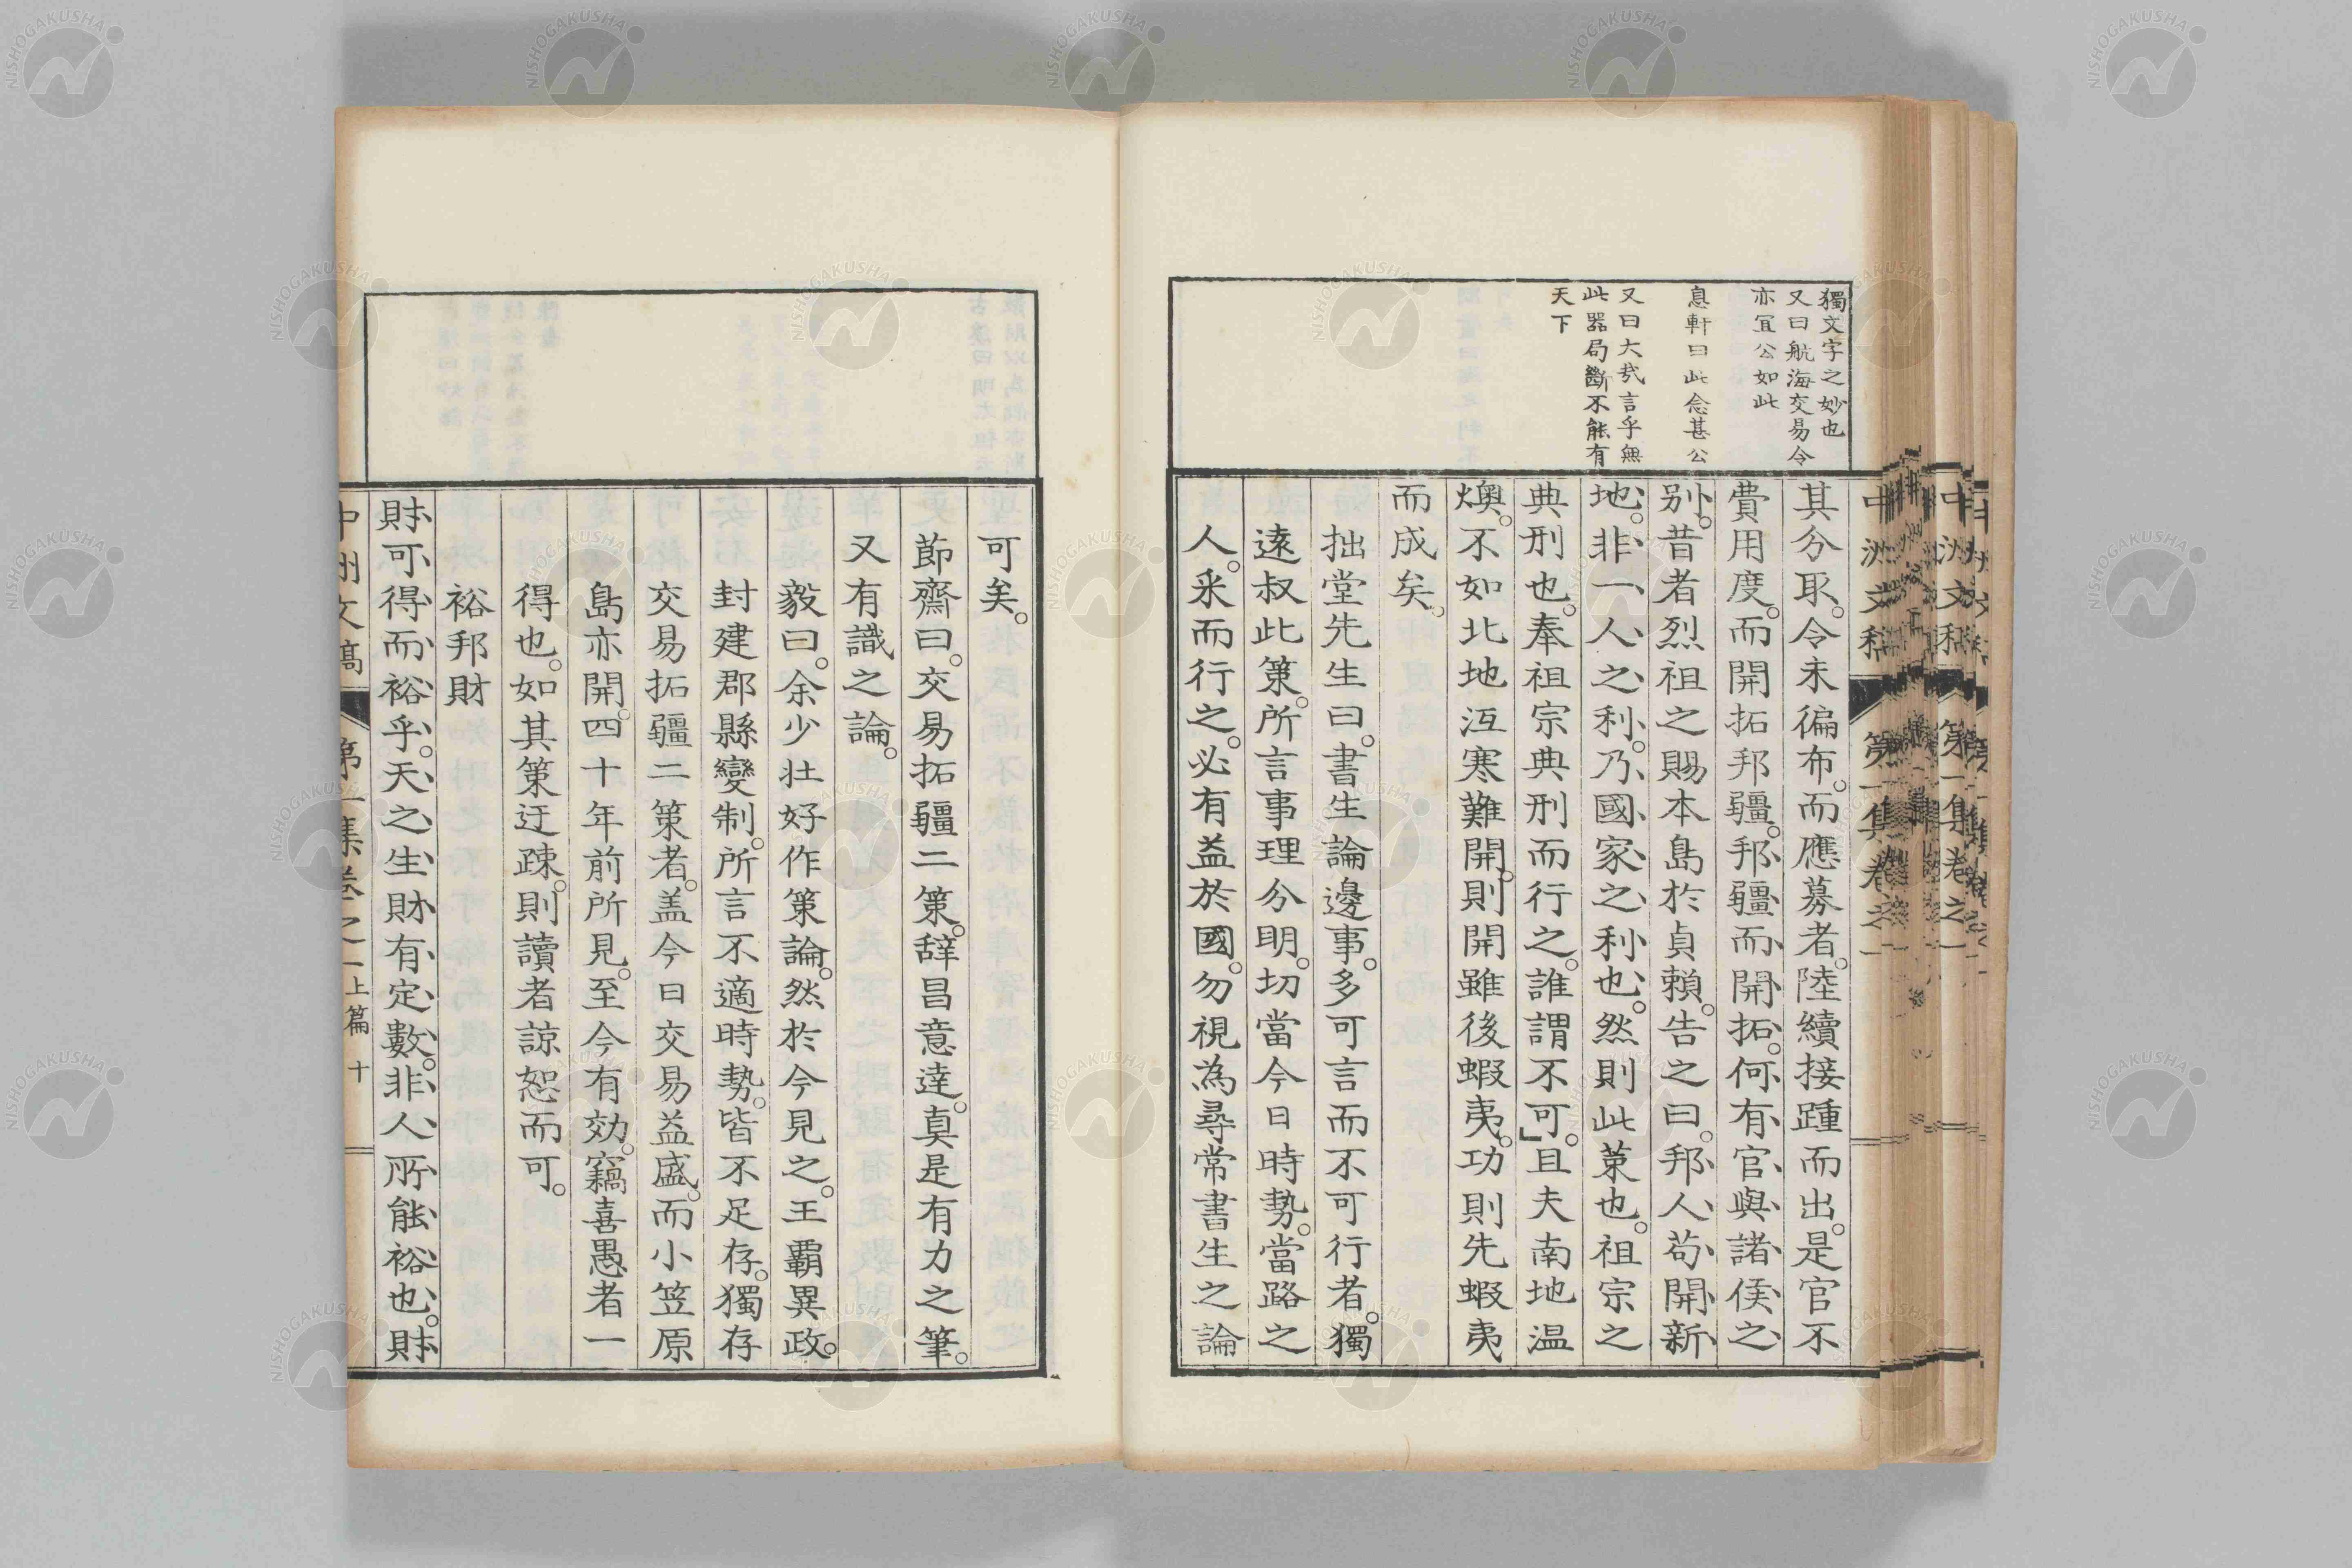 獨文字之妙也
又曰航海交易令
亦冝公如此
息軒曰此念甚公
又曰大哉言乎無
此器局斷不能有
天下
其分取。令未徧布。而應募者。陸續接踵而出。是官不
費用度。而開拓邦疆。邦疆而開拓。何有官與諸侯之
別。昔者烈祖之賜本島於貞賴。告之曰。邦人苟開新
地。非一人之利。乃國家之利也。然則此策也。祖宗之
典刑也。奉祖宗典刑而行之。誰謂不可。」且夫南地温
燠。不如北地沍寒難開。則開雖後蝦夷。功則先蝦夷
而成矣。
拙堂先生曰。書生論邊事。多可言而不可行者。獨
遠叔此策。所言事理分明。切當今日時勢。當路之
人。采而行之。必有益於國。勿視為尋常書生之論
可矣。
節齋曰。交易拓疆二策。辞昌意達。真是有力之筆。
又有識之論。
毅曰。余少壮好作策論。然於今見之。王覇異政。
封建郡縣變制。所言不適時勢。皆不足存。獨存
交易拓疆二策者。盖今日交易益盛。而小笠原
島亦開。四十年前所見。至今有効。竊喜愚者一
得也。如其策迂疎。則讀者諒恕而可。
裕邦財
財可得而裕乎。天之生財有定數。非人所能裕也。財
中洲文稿 第一集卷之一 上篇 十